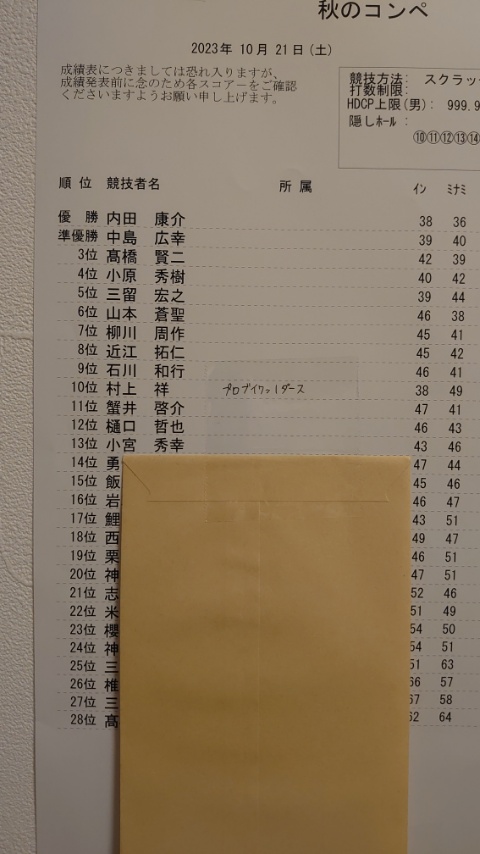 秋のコンペ
2023年 10月 21日(土)
成績表につきましては恐れ入りますが、
成績発表前に念のため各スコアーをご確認
くださいますようお願い申し上げます。
競技方法: スクラッ
打数制限:
HDCP上限(男): 999.9
隠しホール:
⑩⑪⑫⑬⑭
順 位 競技者名 所属 イン ミナミ
優 勝 内田 康介 38 36
準優勝 中島 広幸 39 40
3位 髙橋 賢二 42 39
4位 小原 秀樹 40 42
5位 三留 宏之 39 44
6位 山本 蒼聖 46 38
7位 柳川 周作 45 41
8位 近江 拓仁 45 42
9位 石川 和行 46 41
10位 村上 祥 38 49
11位 蟹井 啓介 47 41
12位 樋口 哲也 46 43
13位 小宮 秀幸 43 46
14位 勇 47 44
15位 飯 45 46
16位 岩 46 47
17位 鯉 43 51
18位 西 49 47
19位 栗 46 51
20位 神 47 51
21位 志 52 46
22位 米 51 49
23位 櫻 54 50
24位 神 54 51
25位 三 51 63
26位 椎 66 57
27位 三 67 58
28位 髙 62 64